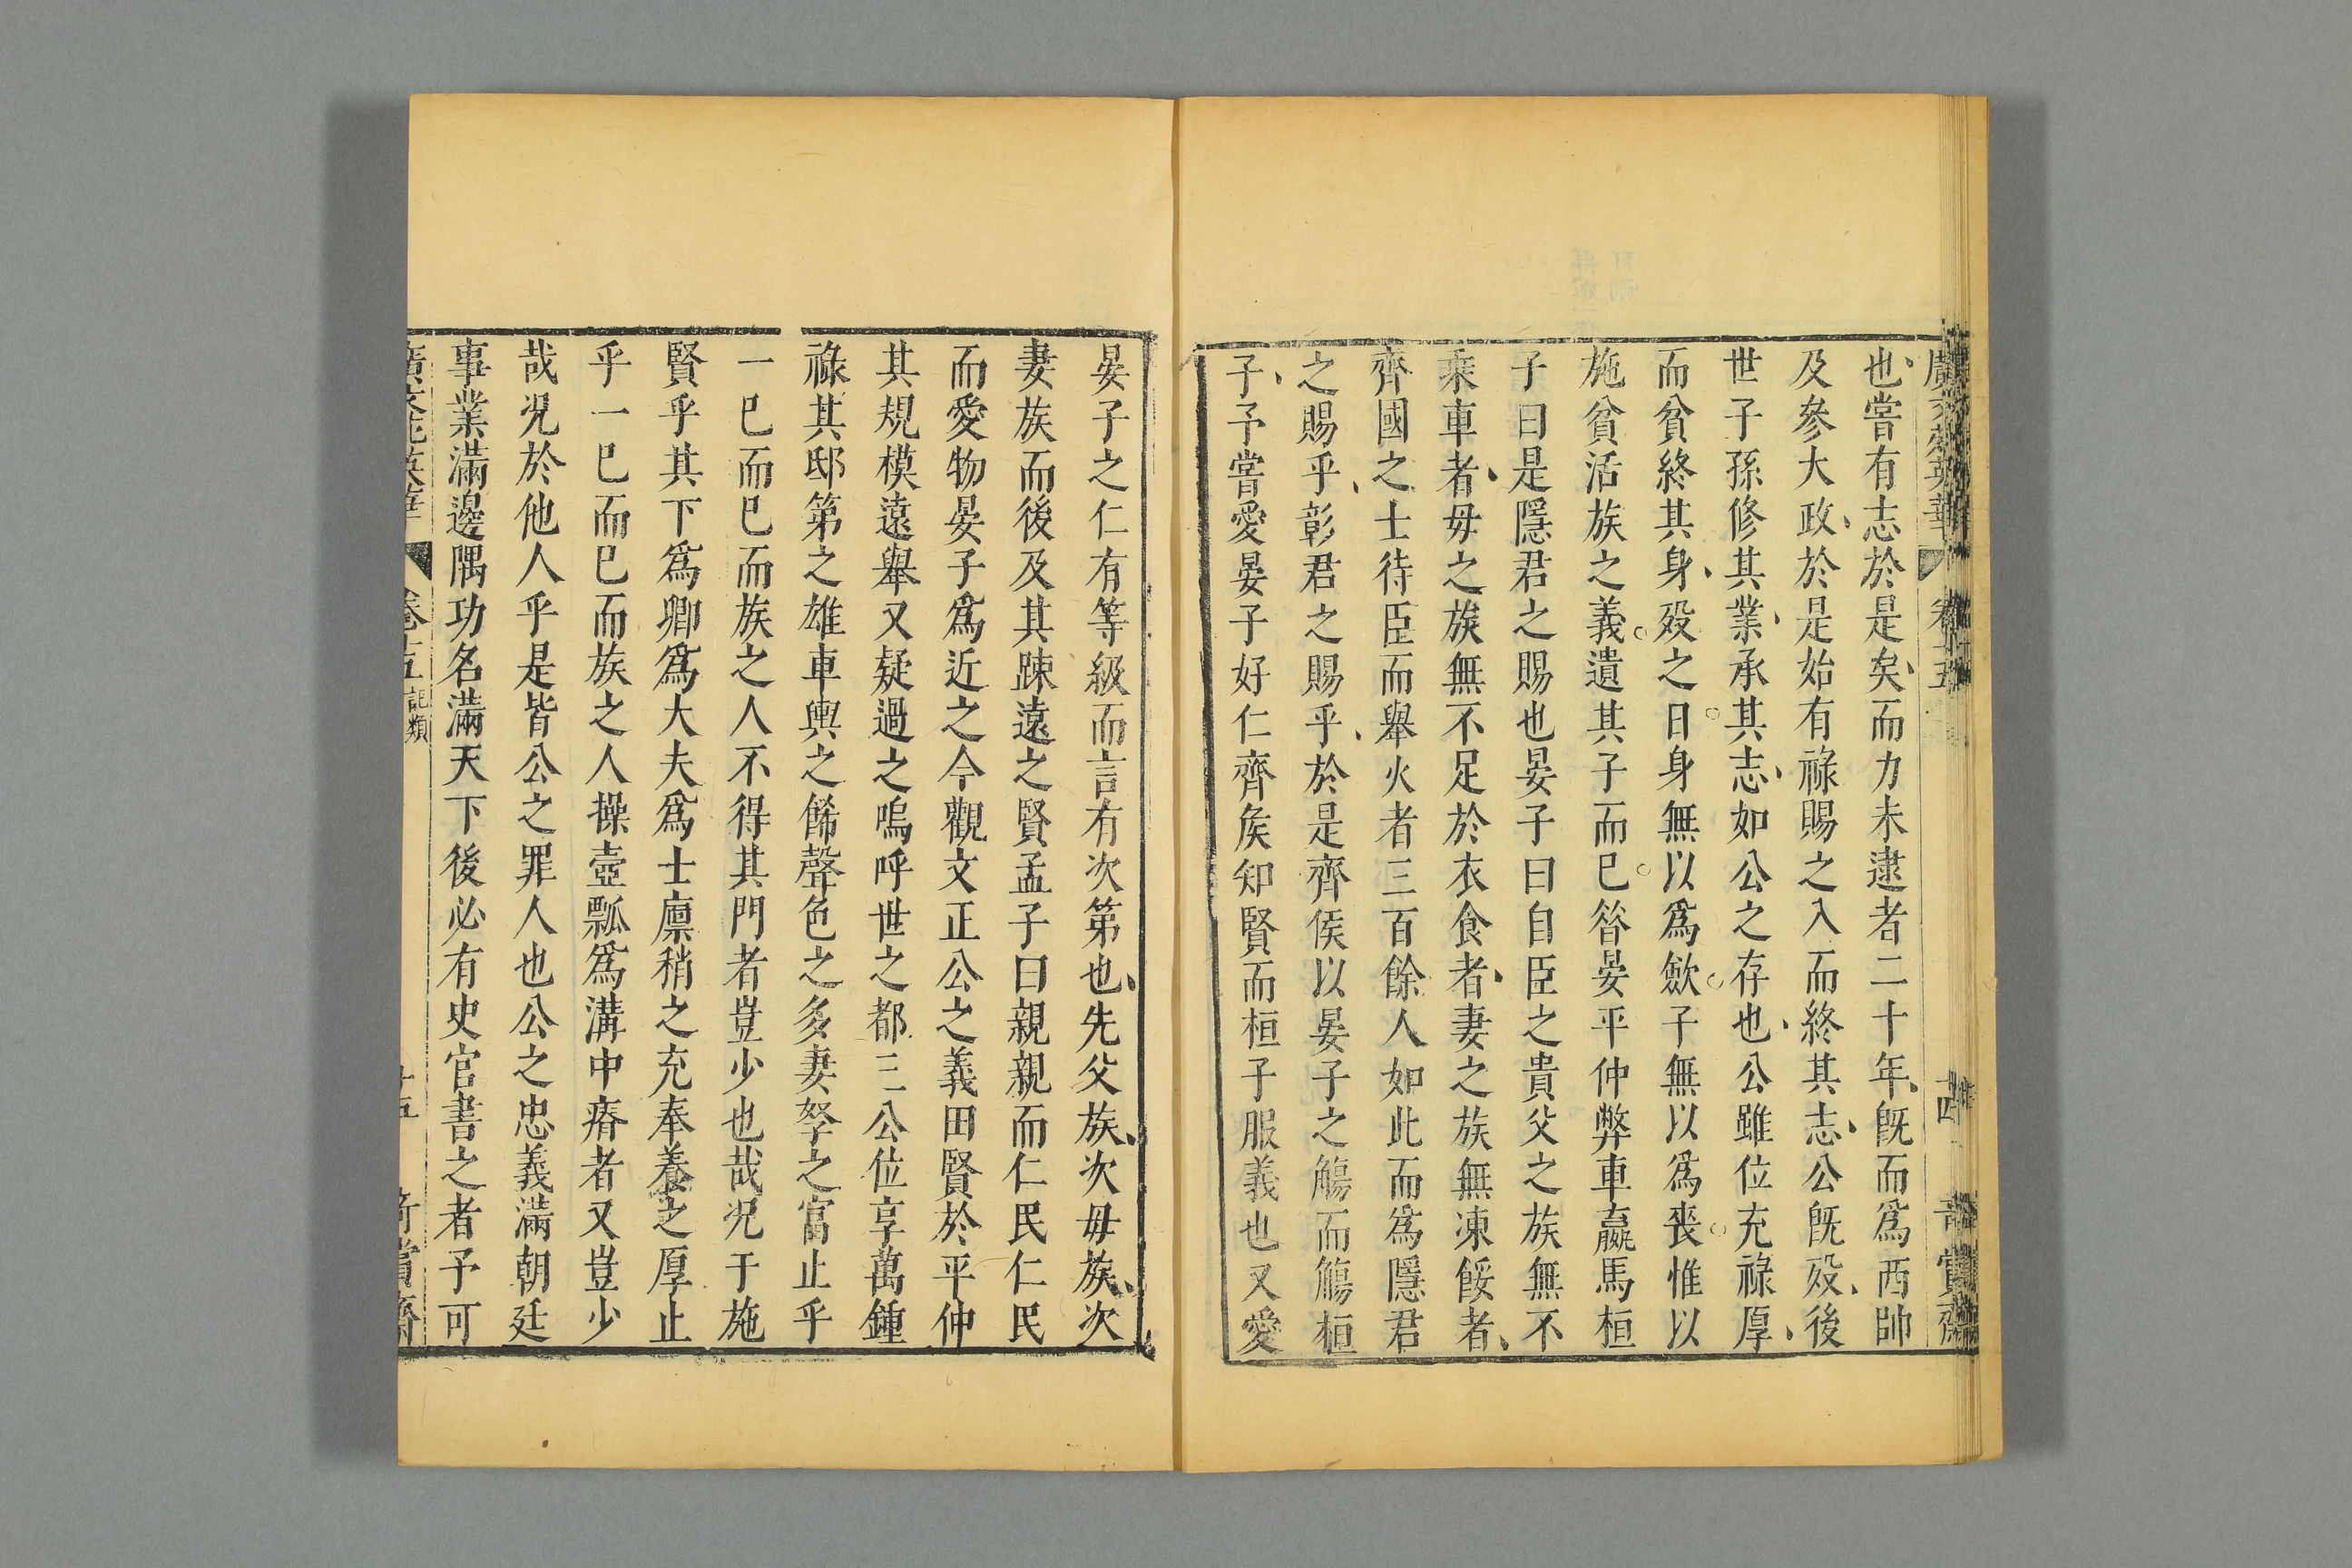 卷十五
十四
也嘗有志於是矣而力未逮者二十年旣而爲西帥
及參大政於是始有祿賜之入而終其志公旣歿後
世子孫修其業承其志如公之存也公雖位充祿厚
而貧終其身歿之日身無以爲歛子無以爲喪惟以
施貧活族之義遺其子而已昝晏平仲弊車羸馬桓
子曰是隱君之賜也晏子曰自臣之貴父之族無不
乘車者毋之族無不足於衣食者妻之族無凍餒者
齊國之士待臣而舉火者三百餘人如此而爲隱君
之賜乎彰君之賜乎於是齊侯以晏子之觴而觴桓
子予嘗愛晏子好仁齊矦知賢而桓子服義也又愛
晏子之仁有等級而言有次第也先父族次毋族次
妻族而後及其踈遠之賢孟子曰親親而仁民仁民
而愛物晏子爲近之今觀文正公之義田賢於平仲
其規模遠舉又疑過之嗚呼世之都三公位享萬鍾
祿其邸第之雄車輿之餙聲色之多妻孥之富止乎
一巳而巳而族之人不得其門者豈少也哉况于施
賢乎其下爲卿爲大夫爲士廩稍之充奉養之厚止
乎一巳而巳而族之人操壺瓢爲溝中瘠者又豈少
哉况於他人乎是皆公之罪人也公之忠義滿朝廷
事業滿邊隅功名滿天下後必有史官書之者予可
卷十五 記類
十五